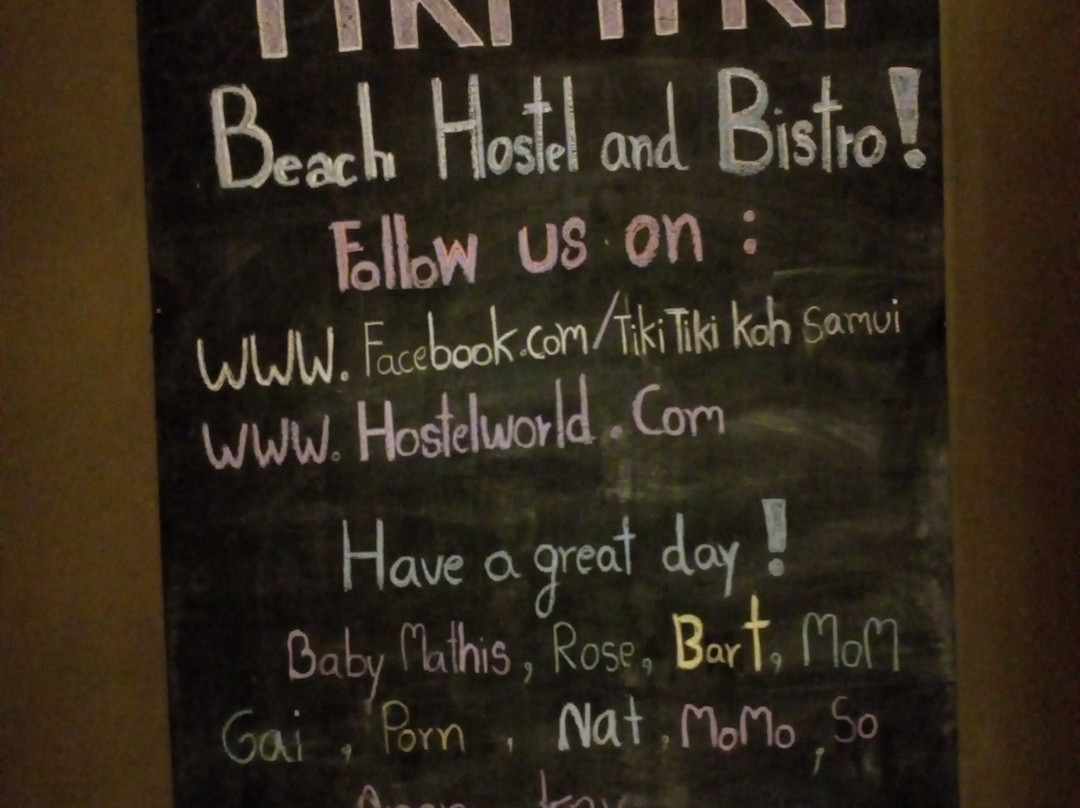 TIKI TIKI
Beach Hostel and Bistro!
Follow us on :
WWW. Facebook.com/TikiTiki Koh Samui
WWW. Hostelworld . Com
Have a great day !
Baby Mathis, Rose, Bart, MoM
Gai , Porn , Nat, MoMo, So